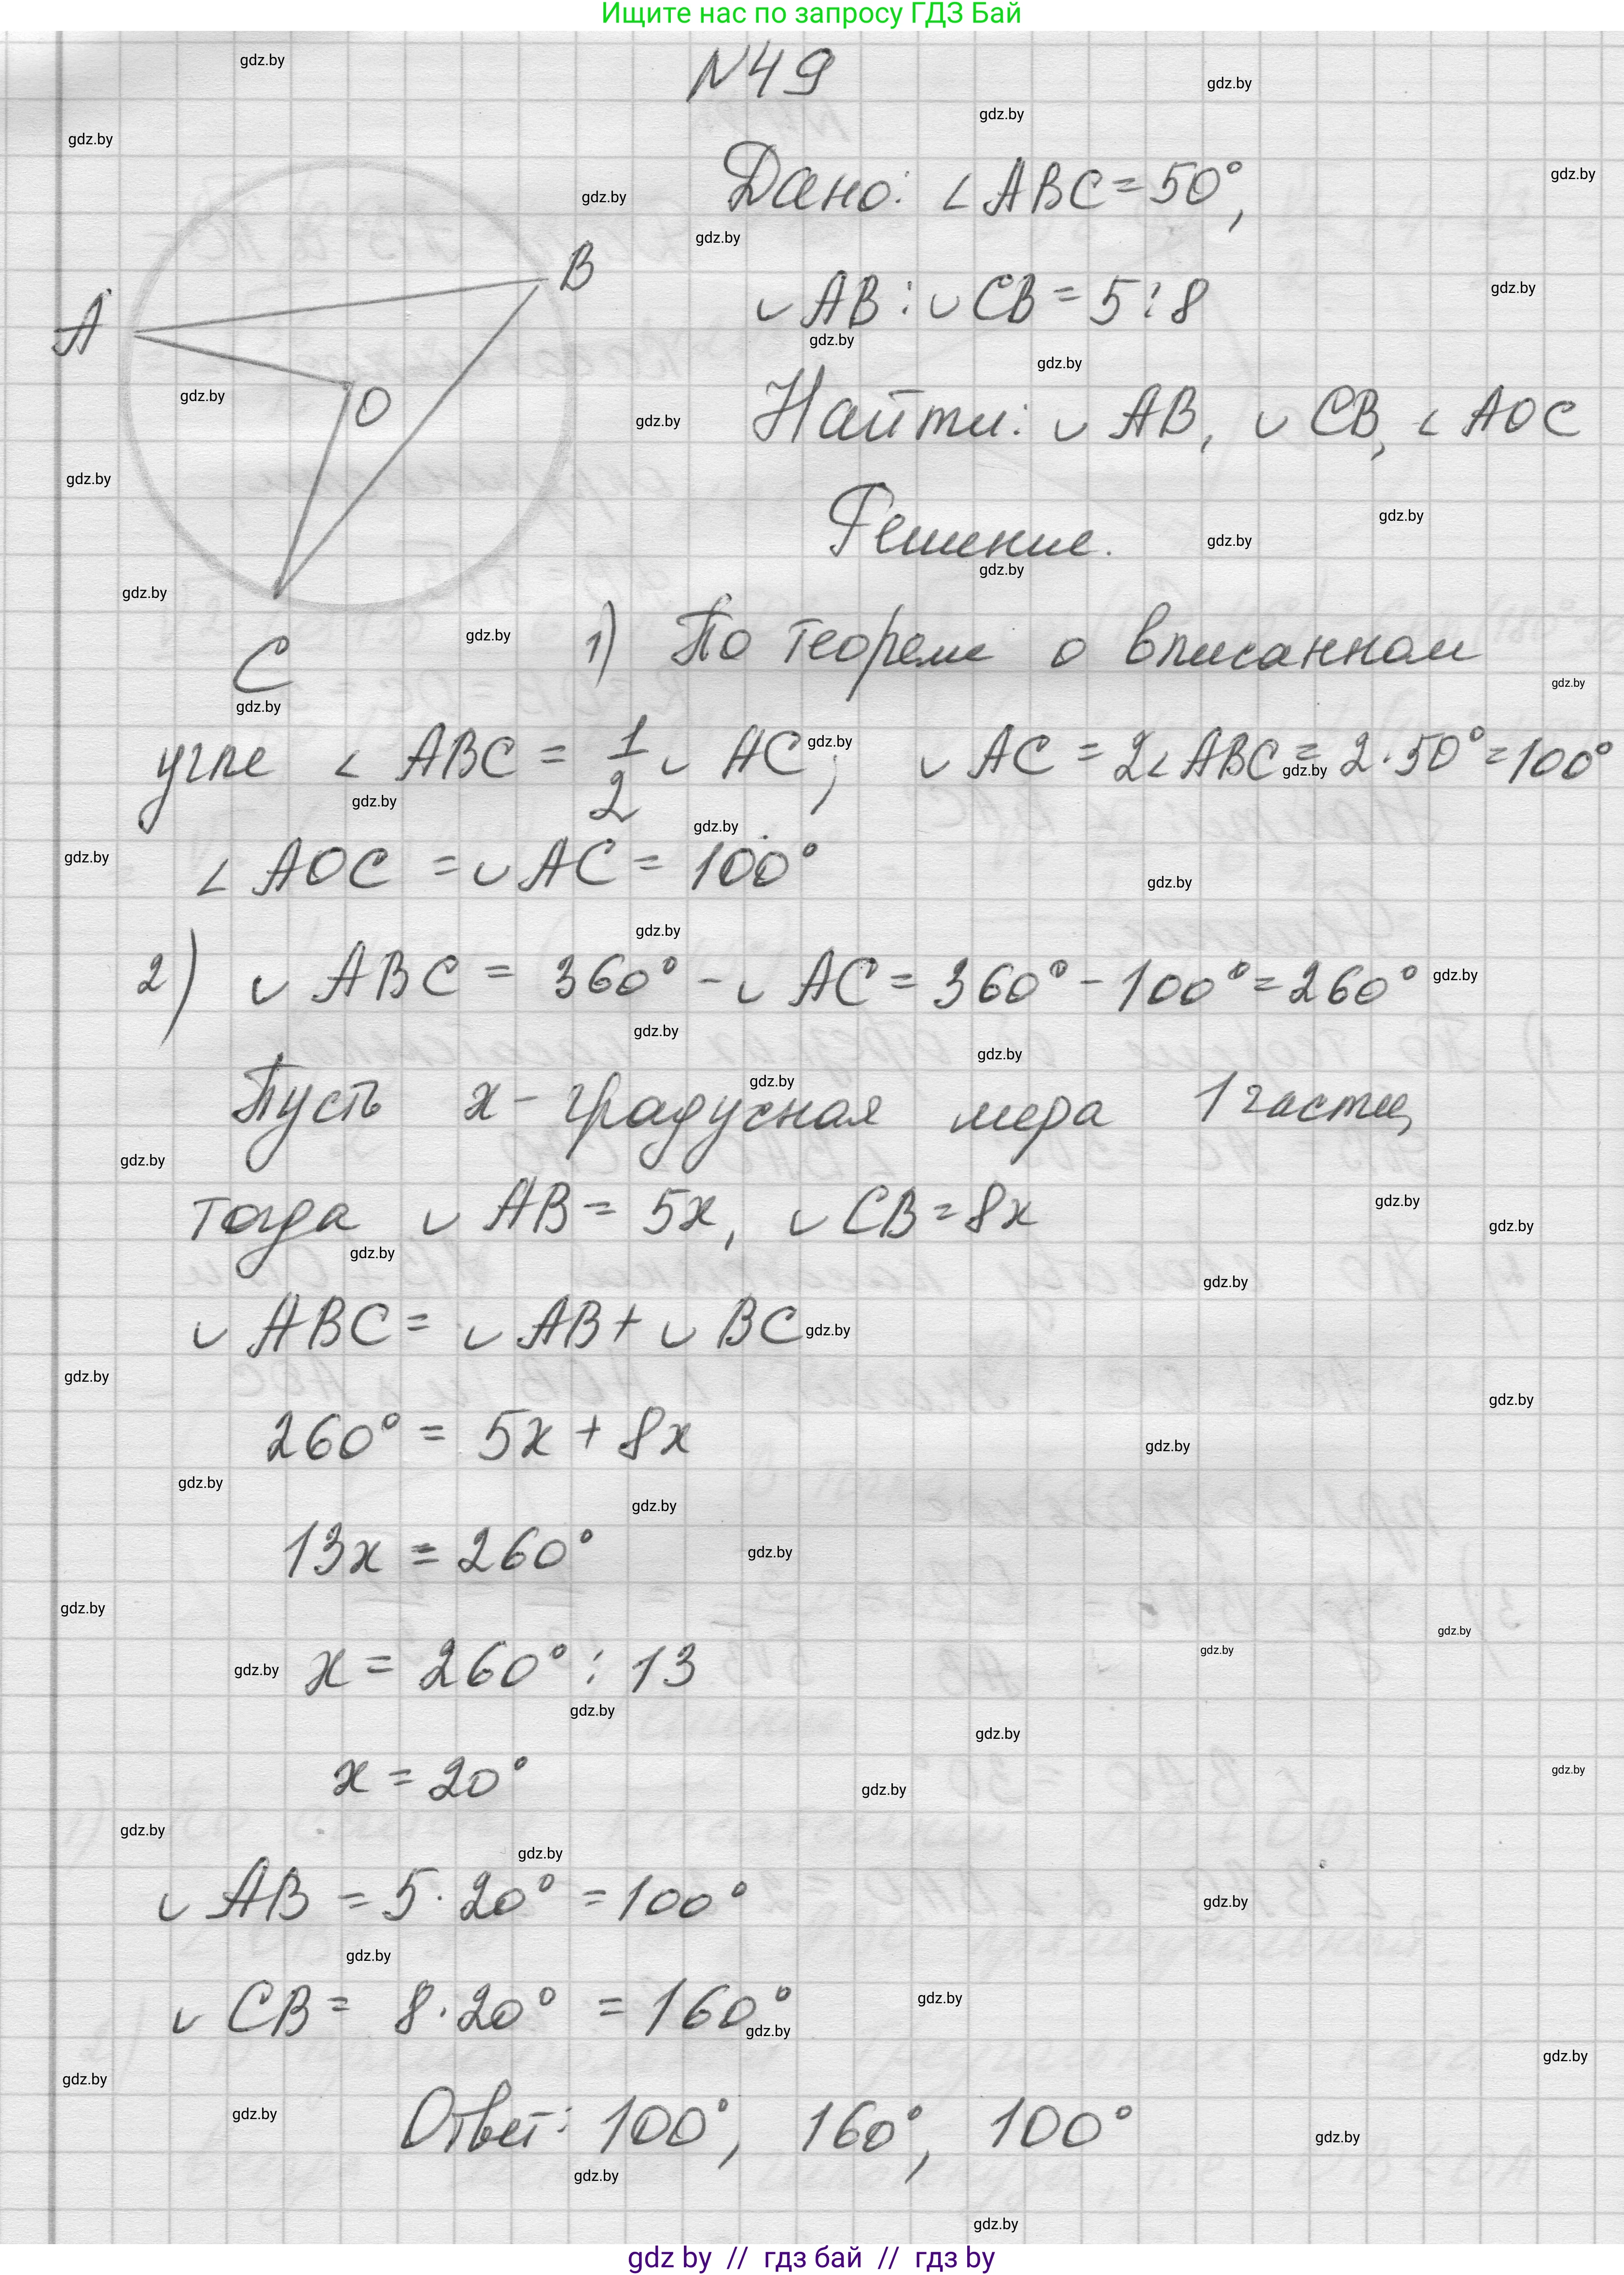 Ищите нас по запросу ГДЗ Бай
N49
Дано: ∠ABC=50°,
◡AB:◡CB=5:8
Найти: ◡AB, ◡CB, ∠AOC
Решение.
A
B
O
C
1) По теореме о вписанном
угле ∠ABC = 1/2 ◡AC; ◡AC = 2∠ABC = 2·50°=100°
∠AOC = ◡AC = 100°
2) ◡ABC = 360° - ◡AC = 360° - 100° = 260°
Пусть x - градусная мера 1 части,
тогда ◡AB = 5x, ◡CB = 8x
◡ABC = ◡AB + ◡BC
260° = 5x + 8x
13x = 260°
x = 260° : 13
x = 20°
◡AB = 5·20° = 100°
◡CB = 8·20° = 160°
Ответ: 100°, 160°, 100°
gdz by // гдз бай // гдз by